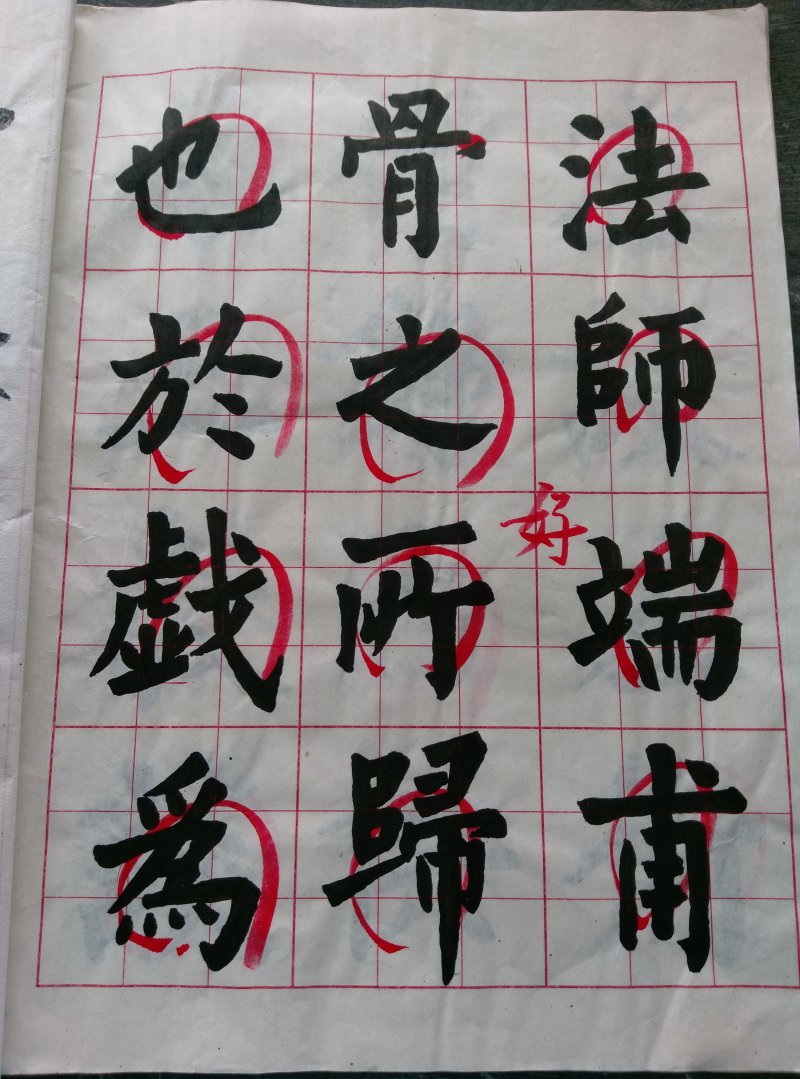 法師端甫
骨之所歸
也於戯爲
好